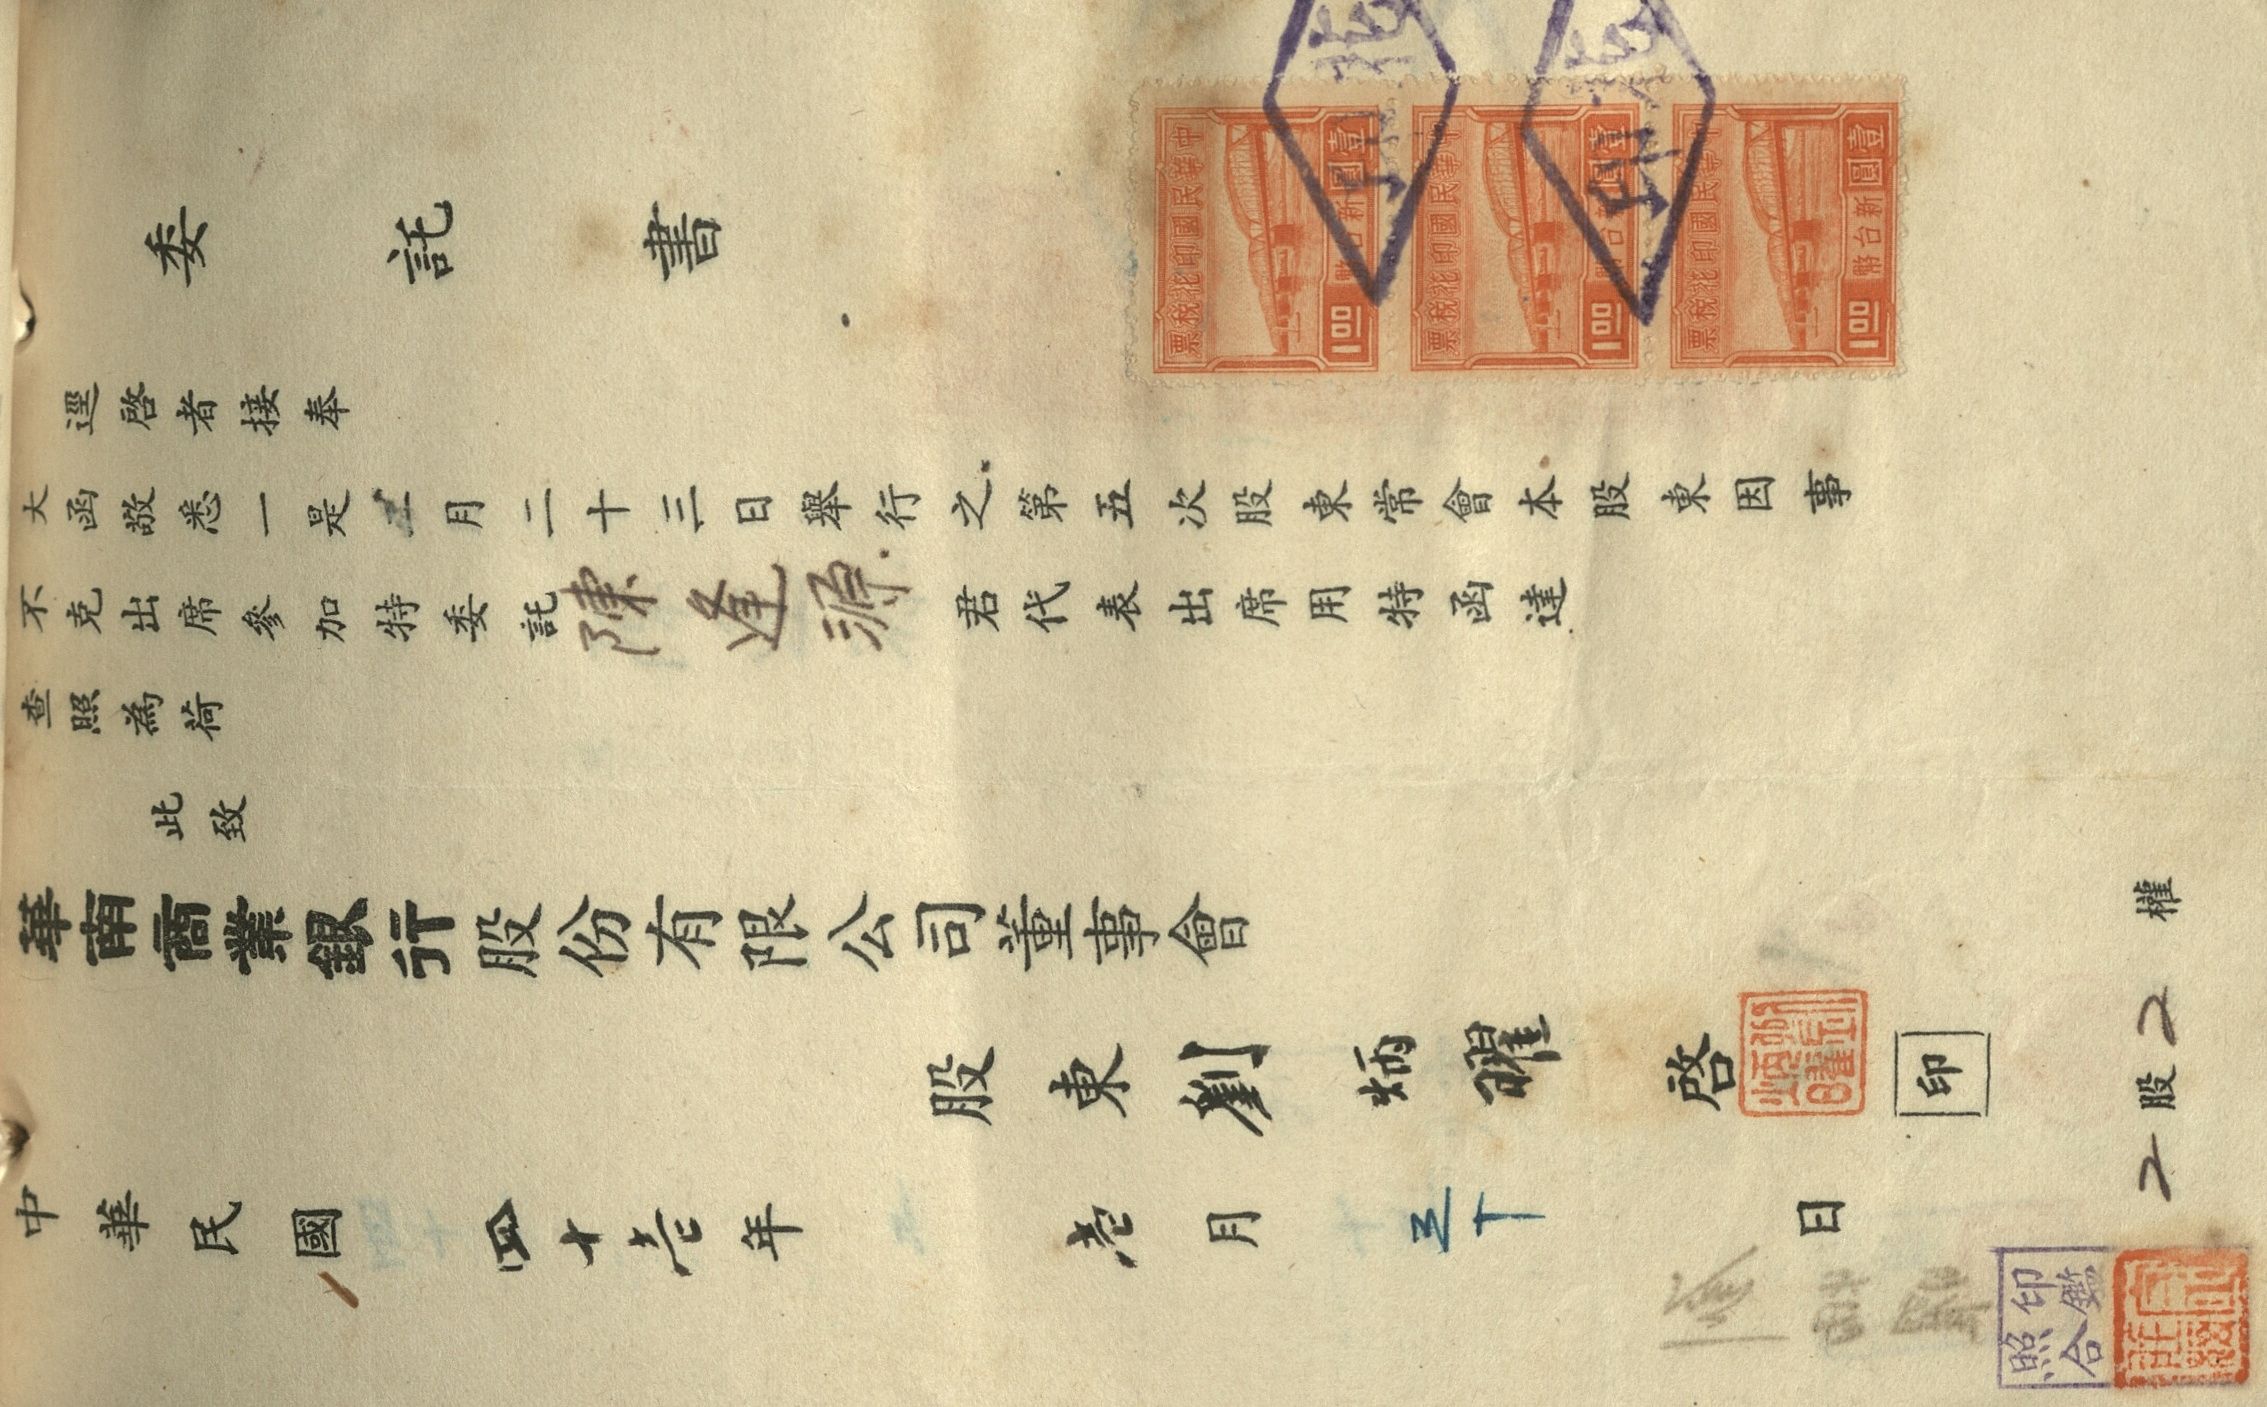 委託書
逕啓者接奉
大函敬悉一是 月二十三日舉行之第五次股東常會本股東因事
不克出席參加特委託陳逢源君代表出席用特函達
查照為荷
此致
華南商業銀行股份有限公司董事會
股東劉炳曜啓
劉炳曜印
印
中華民國四十壱年壱月 日
2股2權
印鑑
照合
中華民國印花稅票
壹圓
新台幣
1.00
中華民國印花稅票
壹圓
新台幣
1.00
中華民國印花稅票
壹圓
新台幣
1.00